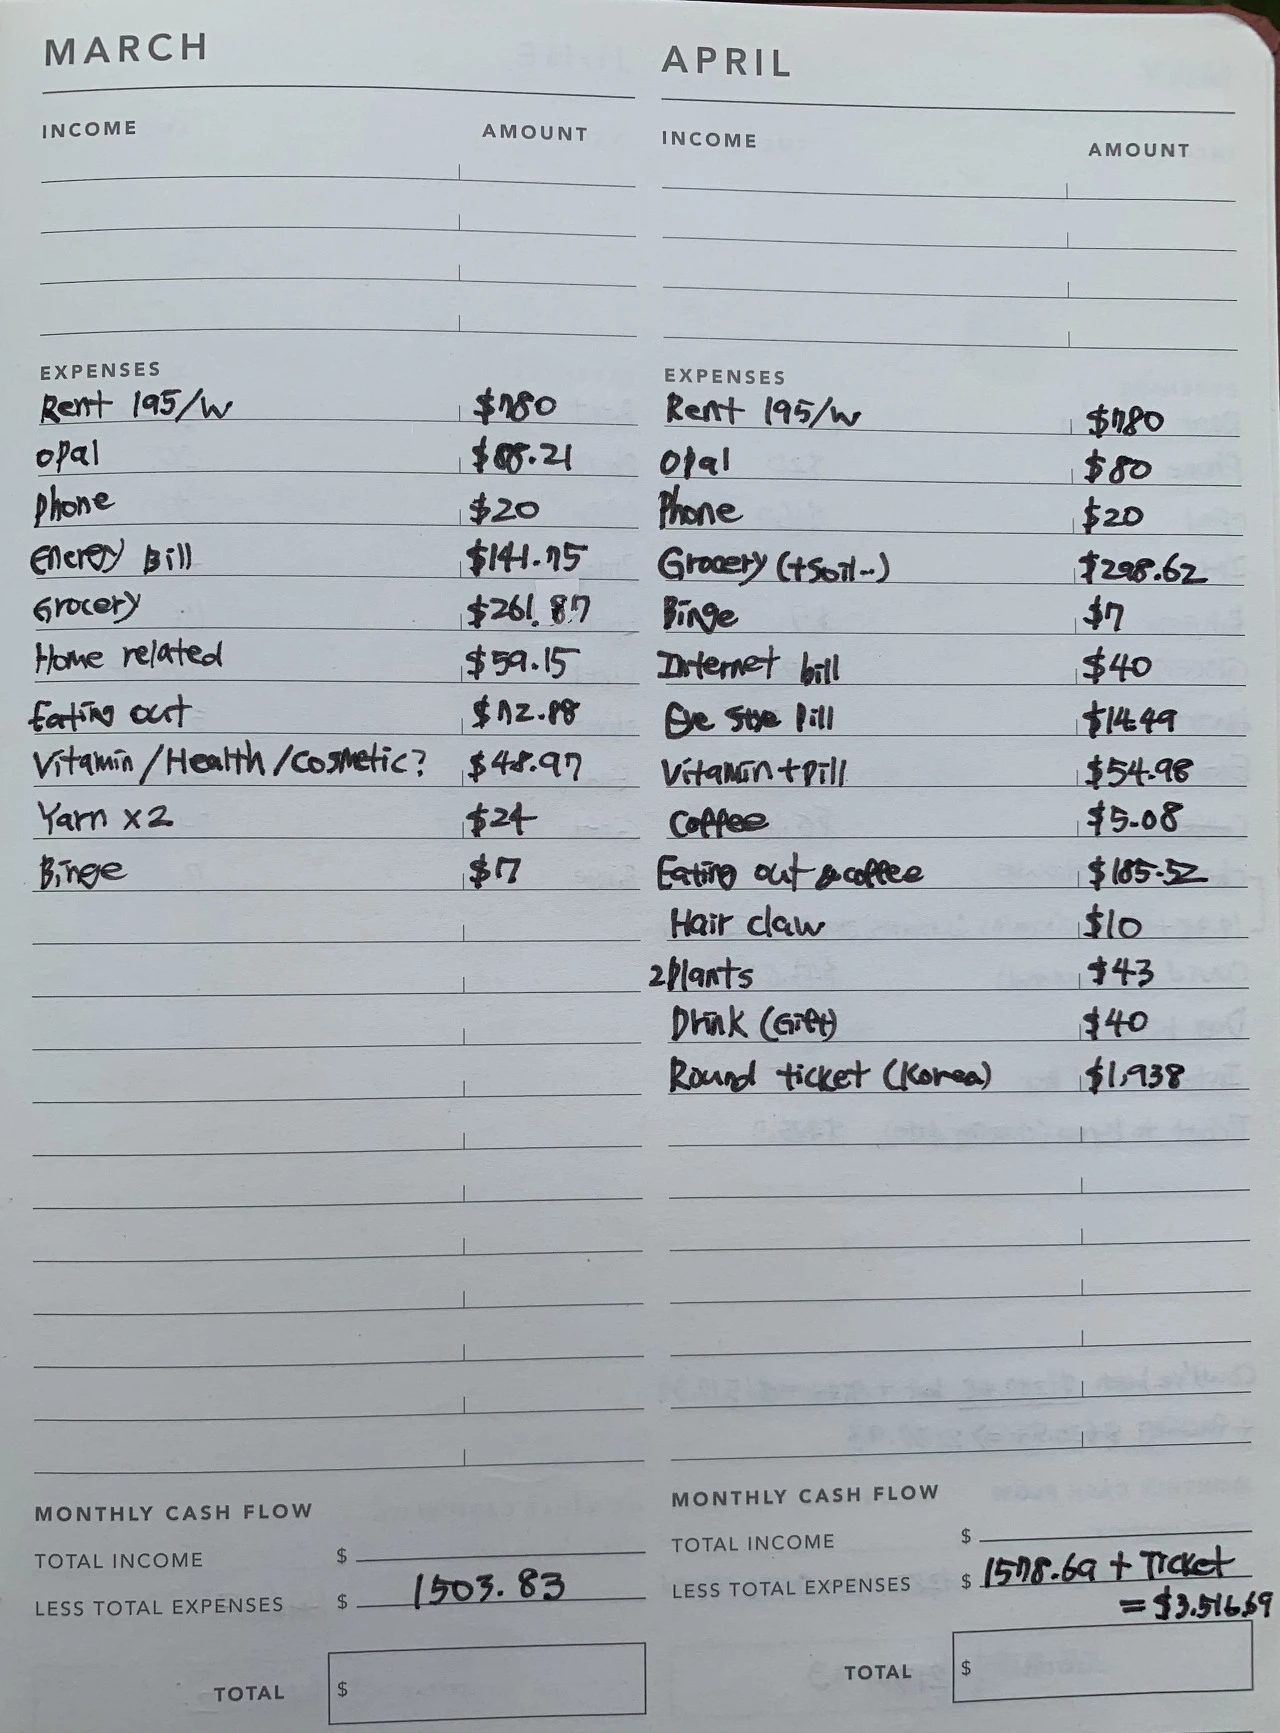 MARCH
INCOME AMOUNT
EXPENSES
Rent 195/w $780
opal $88.21
phone $20
Energy Bill $141.75
Grocery $261.87
Home related $59.15
Eating out $72.88
Vitamin/Health/cosmetic? $48.97
Yarn x2 $24
Binge $7
MONTHLY CASH FLOW
TOTAL INCOME $
LESS TOTAL EXPENSES $ 1503.83
TOTAL $
APRIL
INCOME AMOUNT
EXPENSES
Rent 195/w $780
opal $80
Phone $20
Grocery (+Soil--) $298.62
Binge $7
Internet bill $40
Eye stye pill $14.49
Vitamin+pill $54.98
Coffee $5.08
Eating out & coffee $185.52
Hair claw $10
2Plants $43
Drink (Gift) $40
Round ticket (Korea) $1,938
MONTHLY CASH FLOW
TOTAL INCOME $
LESS TOTAL EXPENSES $ 1578.69 + Ticket
= $3.516.69
TOTAL $